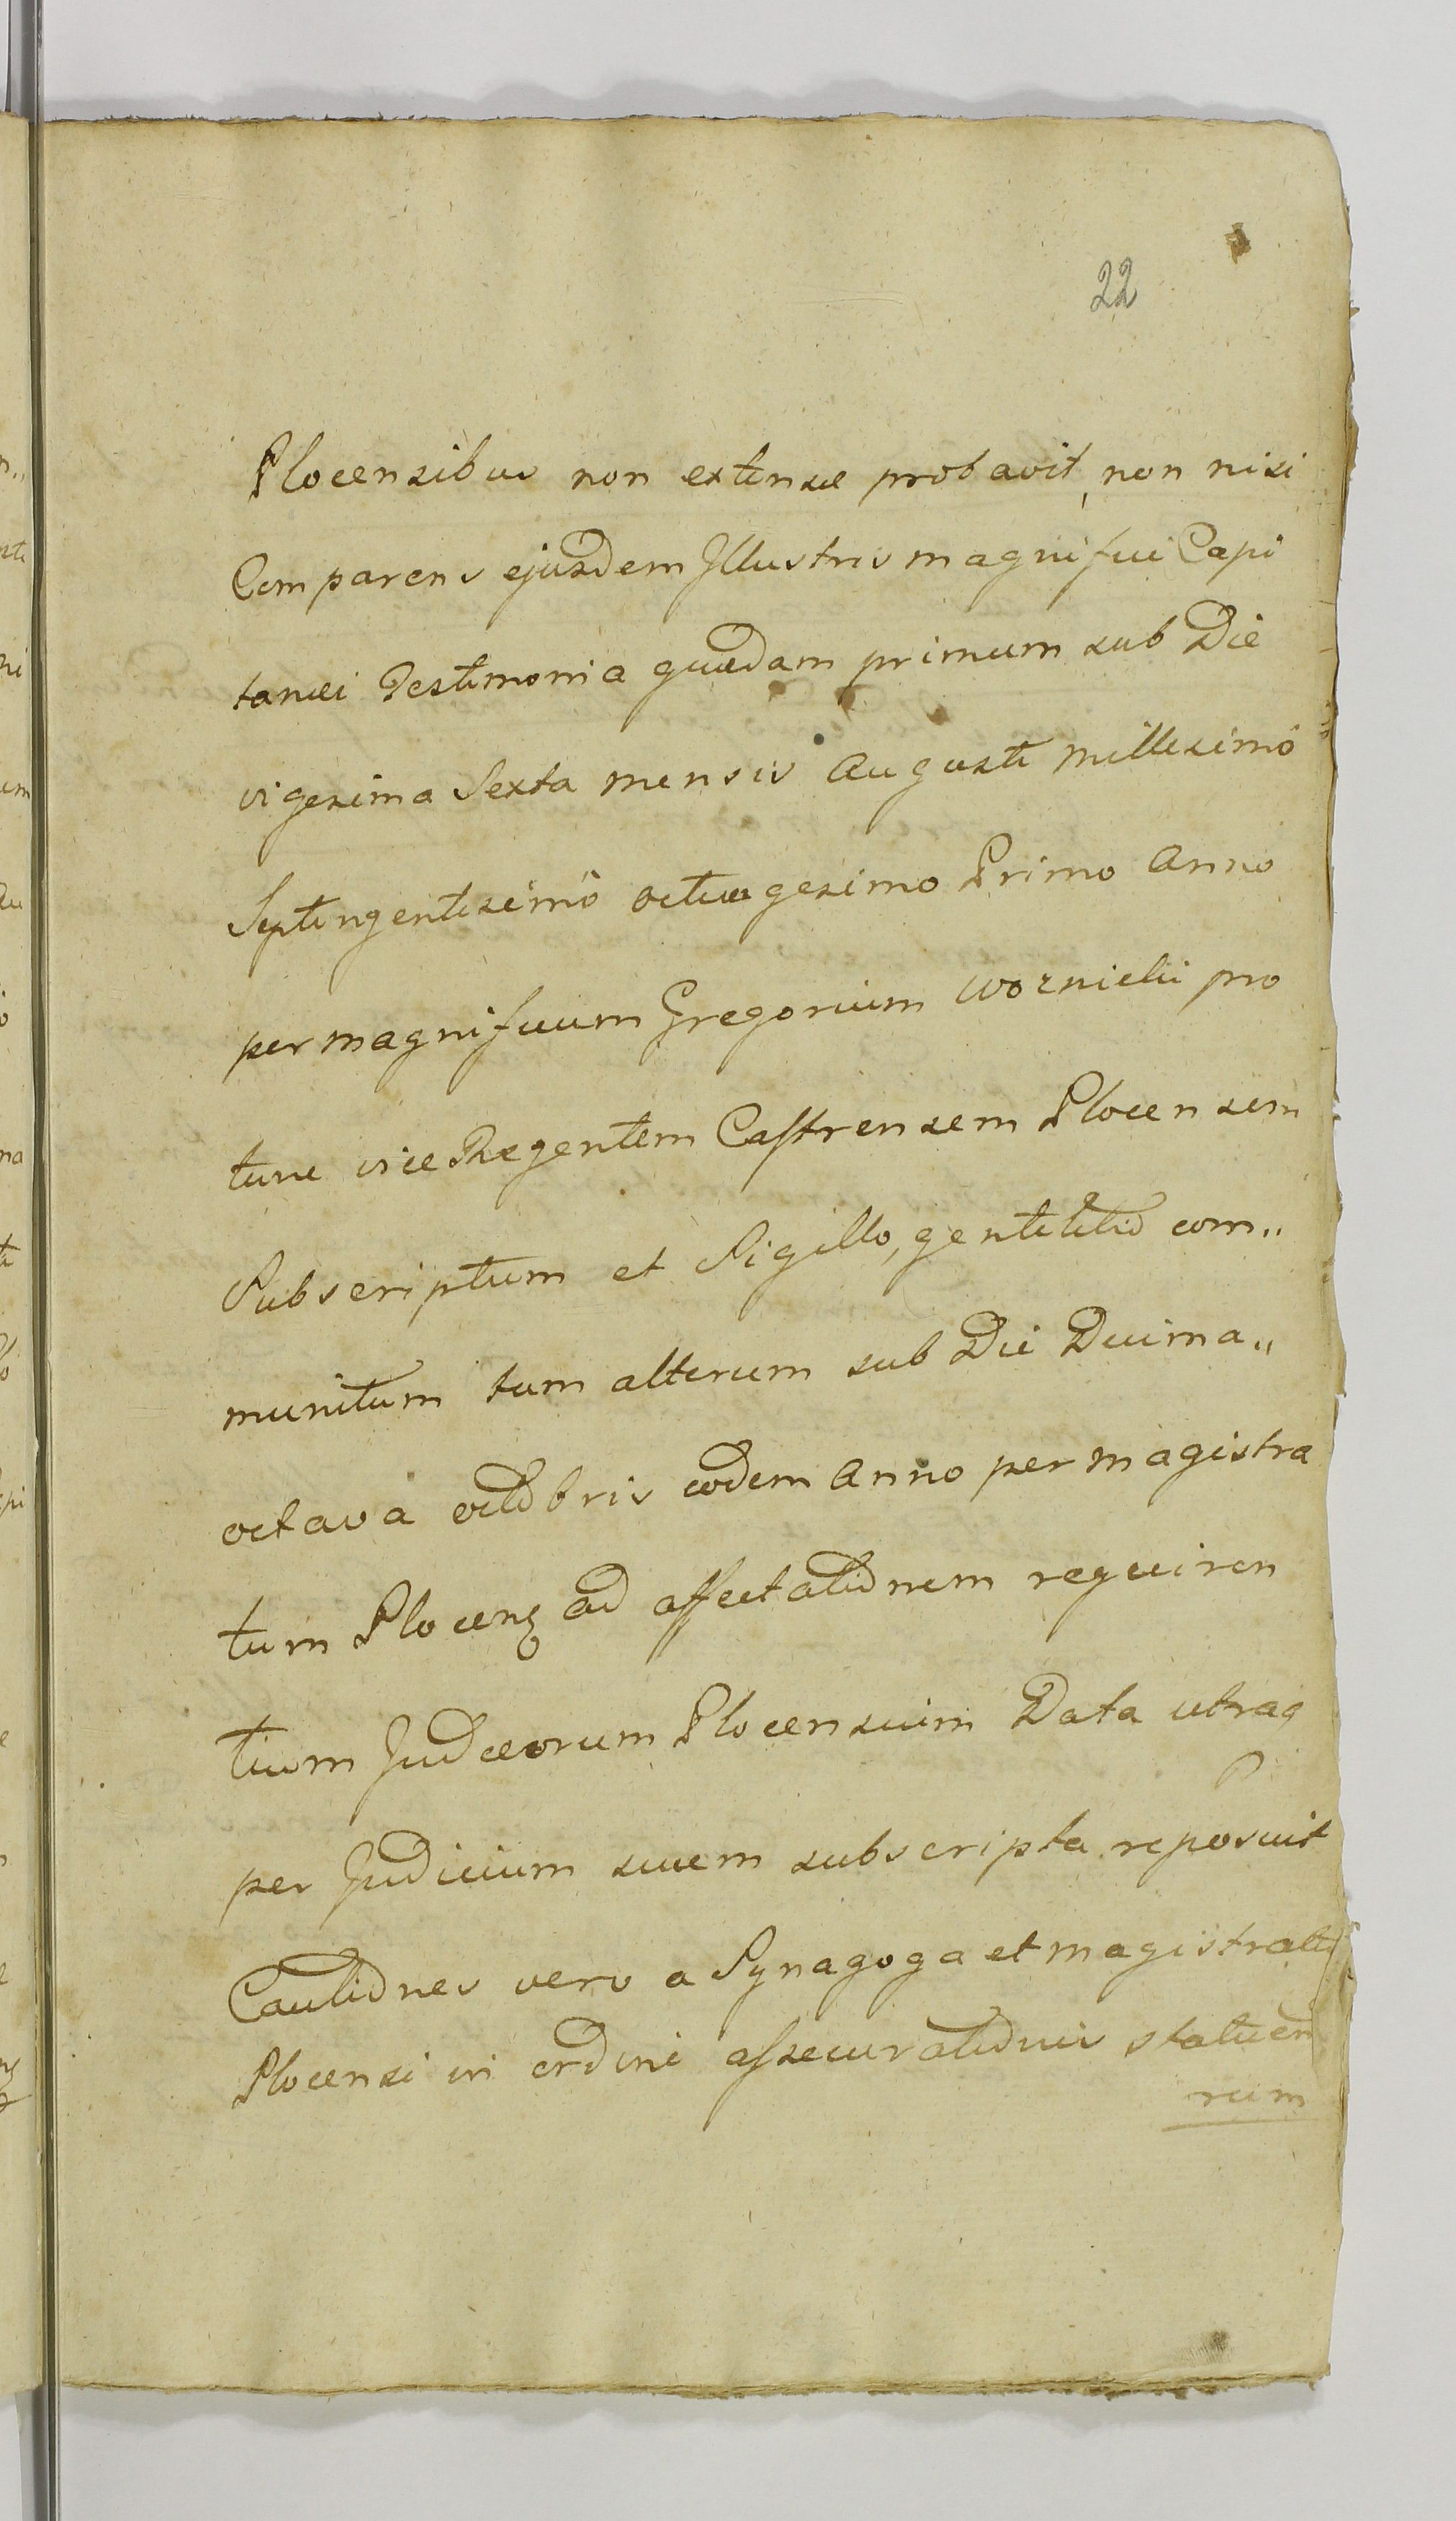 22
Plocensibus non extensæ probavit, non nisi
Comparens ejusdem Illustris magnifici Capi
tanei Testimonia quædam primum sub Die
vigesima Sexta mensis Augusti millesimo
Septingentesimo octuagesimo Primo Anno
per magnificum Gregorium Woznicki pro
tunc vice Regentem Castrensem Plocensem
Subscriptum et Sigillo, gentilitio com„
munitum tum alterum sub Die Decima„
octava octobris eodem Anno per magistra
tum Plocens ad affectationem requiren
tium Judæorum Plocensium Data utraq
per Judicium suum subscripta reposuit
Cautiones vero a Synagoga et magistratu
Plocensi in ordine assecurationis statuen
rum